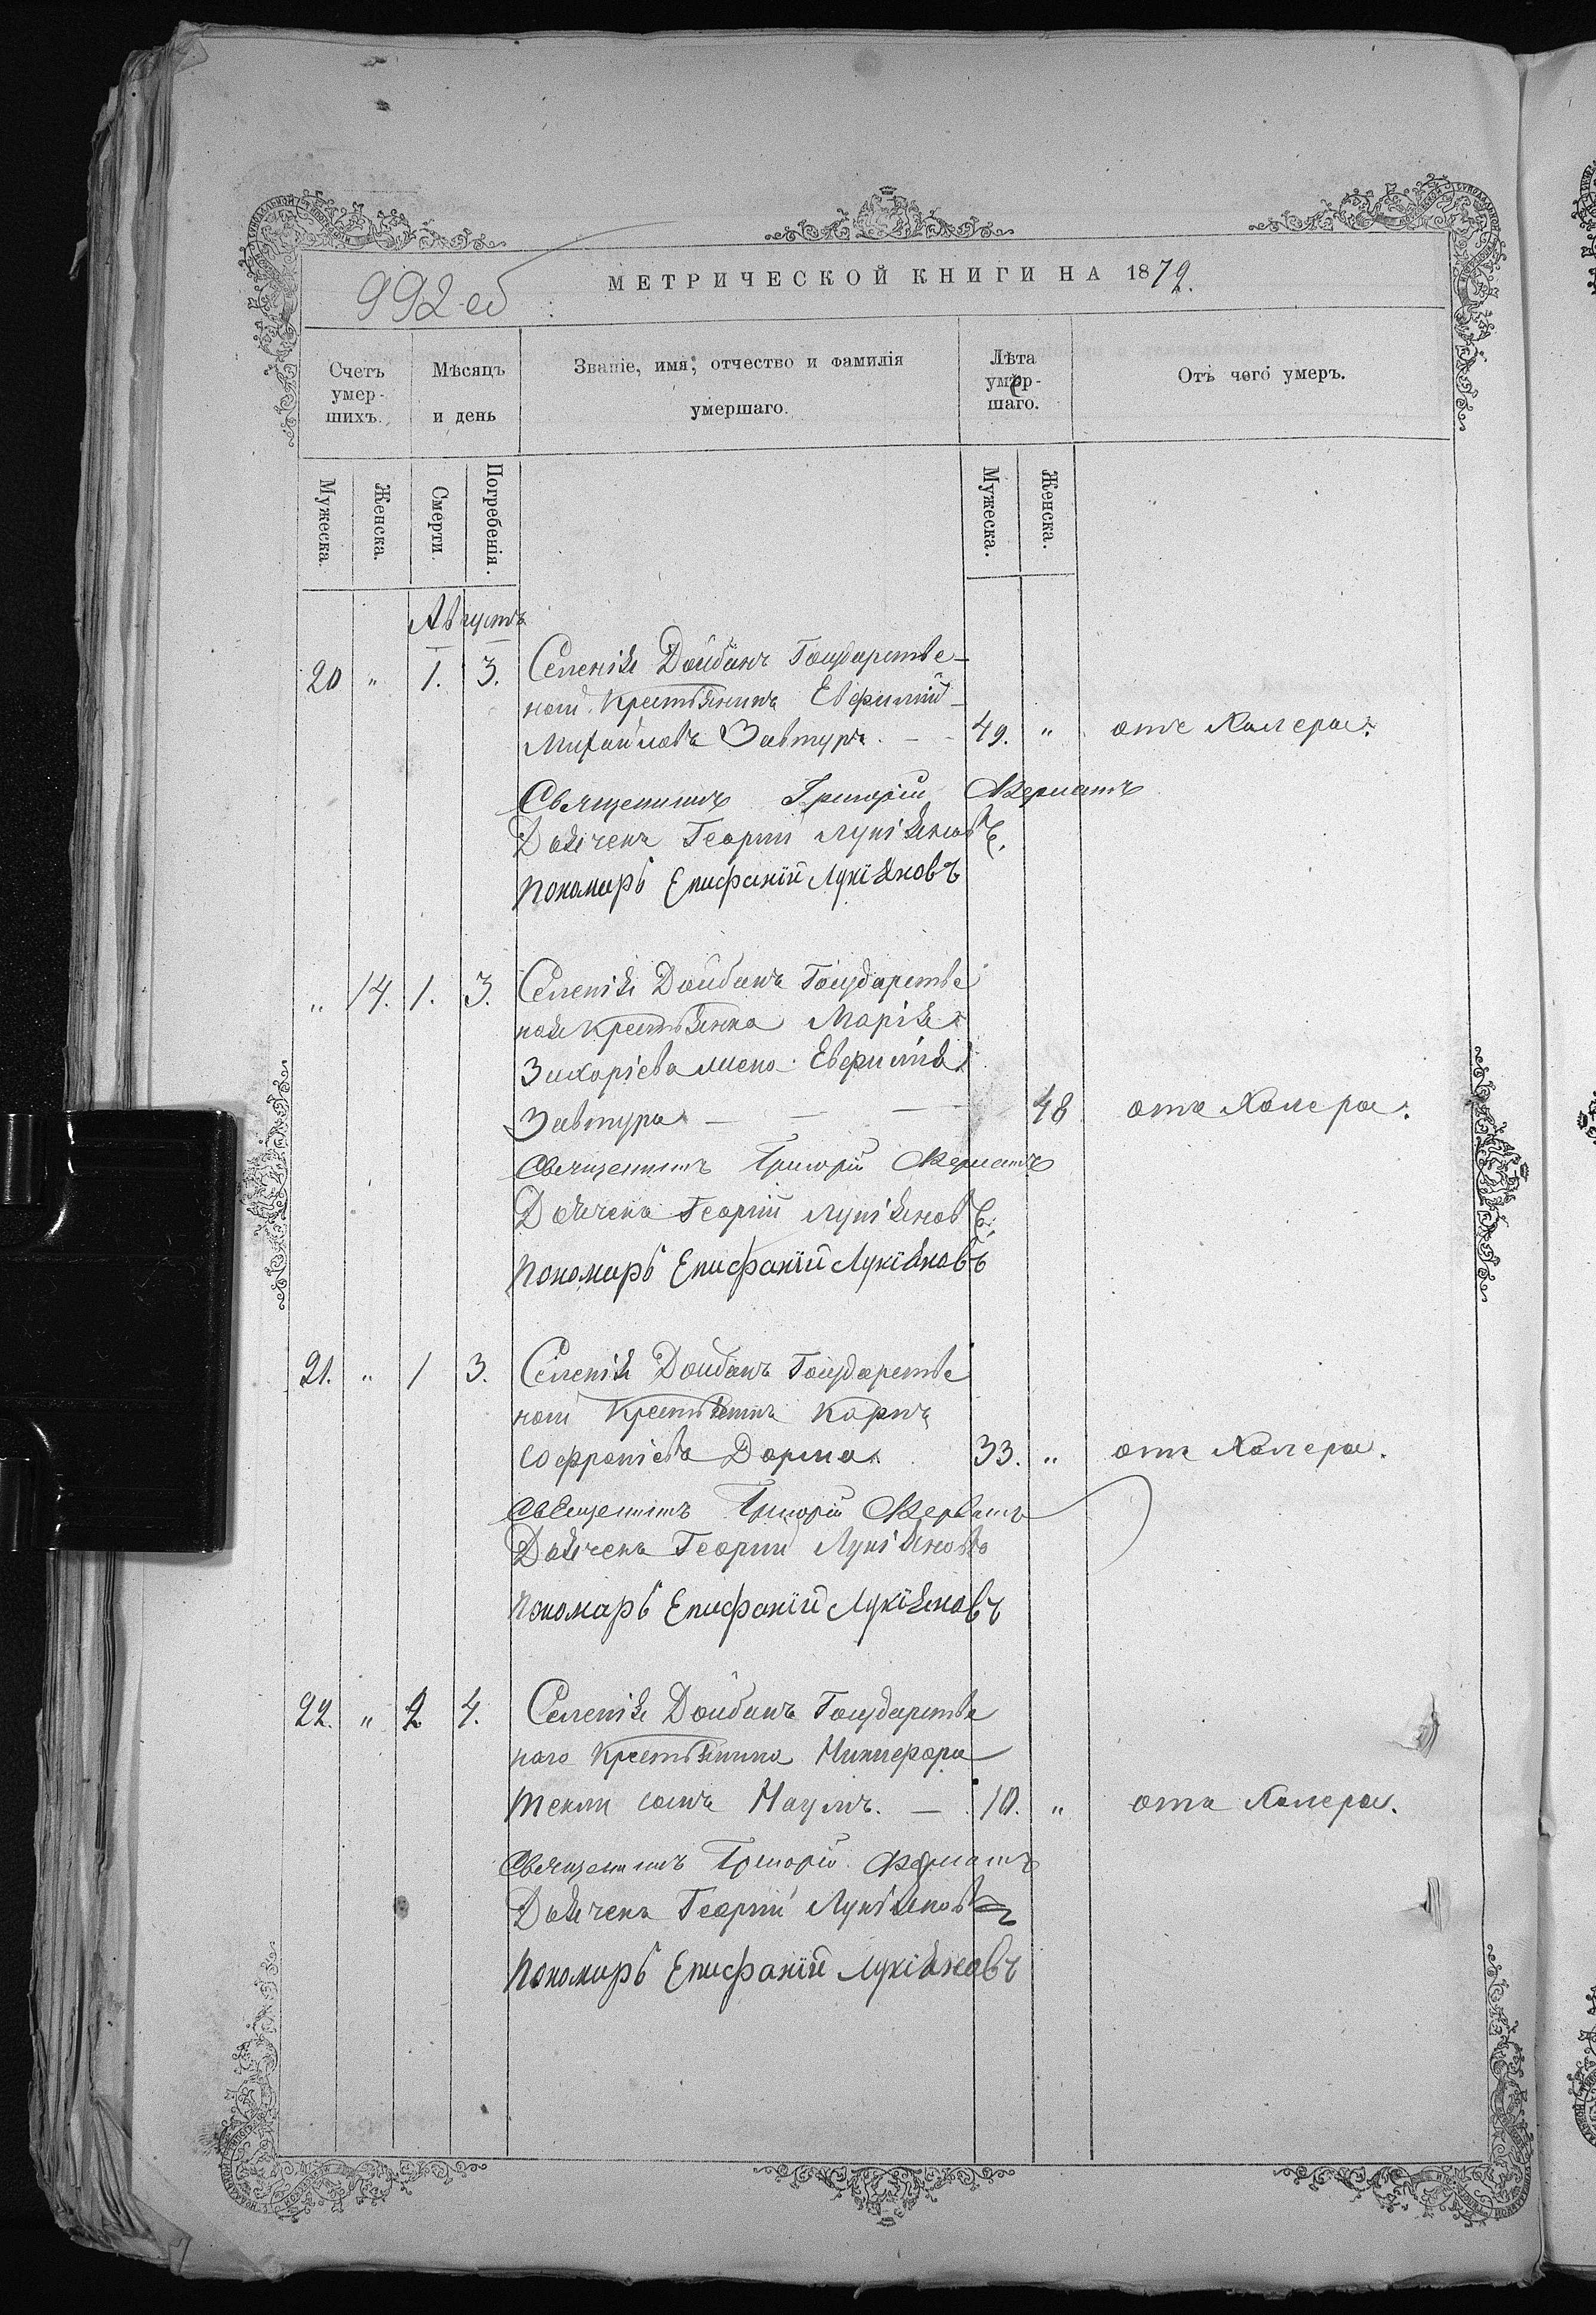 992 об
МЕТРИЧЕСКОЙ КНИГИ НА 1872.
Счетъ умер- шихъ.
Мѣсяцъ и день
Званіе, имя, отчество и фамилія умершаго.
Лѣта умер- шаго.
Отъ чего умеръ.
Мужеска.
Женска.
Смерти.
Погребенія.
Мужеска.
Женска.
Августъ
20 " 1. 3. Селенія Дойбанъ Государстве-
ной Крестьянинъ Евфимій
Михайловъ Завтуръ. - - 49. " отъ Халеры.
Священникъ Григорій
Дьячекъ Георгій Лукіяновъ.
Пономарь Епифаній Лукіяновъ
" 14. 1. 3. Селенія Дойбанъ Государстве
ная Крестьянка Марія
Захоріева жена Евфимія
Завтура - - 48 отъ Халеры.
Священникъ Григорій
Дьячекъ Георгій Лукіяновъ.
Пономарь Епифаній Лукіяновъ
21. " 1 3. Селенія Дойбанъ Государстве
ной Крестьянинъ Карпъ
Софроніевъ Дарма 33. " отъ Халеры.
Священникъ Григорій
Дьячекъ Георгій Лукіяновъ
Пономарь Епифаній Лукіяновъ
22. " 2 4. Селенія Дойбанъ Государстве
наго Крестьянина Никифора
Текли сынъ Наумъ. - 10. " отъ Халеры.
Священникъ Григорій
Дьячекъ Георгій Лукіяновъ
Пономарь Епифаній Лукіяновъ